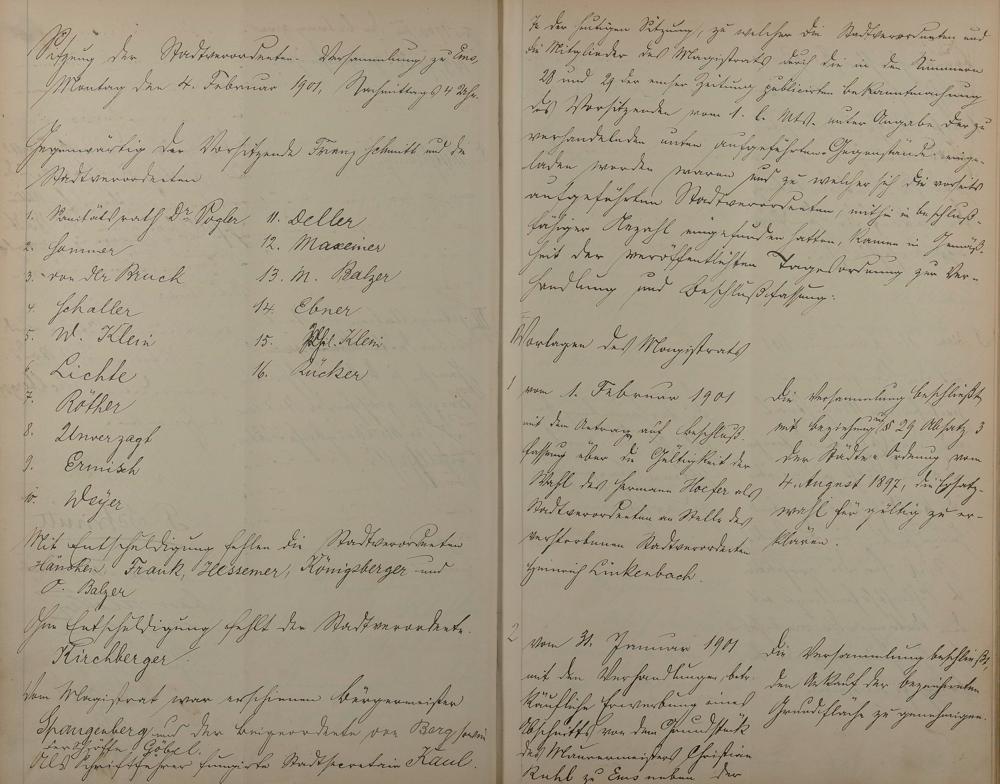 Sitzung der Stadtverordneten-Versammlung zu Ems,
Montag den 4. Februar 1901, Nachmittags 4 Uhr.
Gegenwärtig der Vorsitzende Franz Schmitt und die
Stadtverordneten
1. Sanitätsrath Dr. Vogler
2. Sommer
3. von der Bruck
4. Schaller
5. W. Klein
6. Lichte
7. Röther
8. Unverzagt
9. Ermisch
10. Weyer
11. Deller
12. Maxeiner
13. M. Balzer
14. Ebner
15. Phil. Klein
16. Rücker
Mit Entschuldigung fehlen die Stadtverordneten
Hänchen, Frank, Hessemer, Königsberger und
O. Balzer
Ohne Entschuldigung fehlt der Stadtverordnete
Kirchberger
Vom Magistrat war erschienen Bürgermeister
Spangenberg und der Beigeordnete von Berg sowie
der Schöffe Göbel.
Als Schriftführer fungirte Stadtsecretair Kaul.
In der heutigen Sitzung, zu welcher die Stadtverordneten und
die Mitglieder des Magistrats durch die in den Nummern
28 und 29 der Emser Zeitung publicirten Bekanntmachung
des Vorsitzenden vom 1. l. Mts. unter Angabe der zu
verhandelnden unten aufgeführten Gegenstände einge-
laden worden waren und zu welcher sich die vorseits
aufgeführten Stadtverordneten, mithin in beschluß-
fähiger Anzahl eingefunden hatten, kamen in Gemäß-
heit der veröffentlichten Tagesordnung zur Ver-
handlung und Beschlußfassung:
Vorlagen des Magistrats
1 vom 1. Februar 1901
mit dem Antrag auf Beschluß-
fassung über die Gültigkeit der
Wahl des Hermann Hoefer als
Stadtverordneten an Stelle des
verstorbenen Stadtverordneten
Heinrich Linkenbach.
Die Versammlung beschließt
mit Beziehung auf § 29 Absatz 3
der Städte-Ordnung vom
4. August 1897, die Ersatz-
wahl für gültig zu er-
klären.
2 vom 31. Januar 1901
mit den Verhandlungen betr.
käufliche Erwerbung eines
Abschnitts von dem Grundstück
des Maurermeisters Christian
Kuhl zu Ems neben der
Die Versammlung beschließt,
den Ankauf der bezeichneten
Grundfläche zu genehmigen.